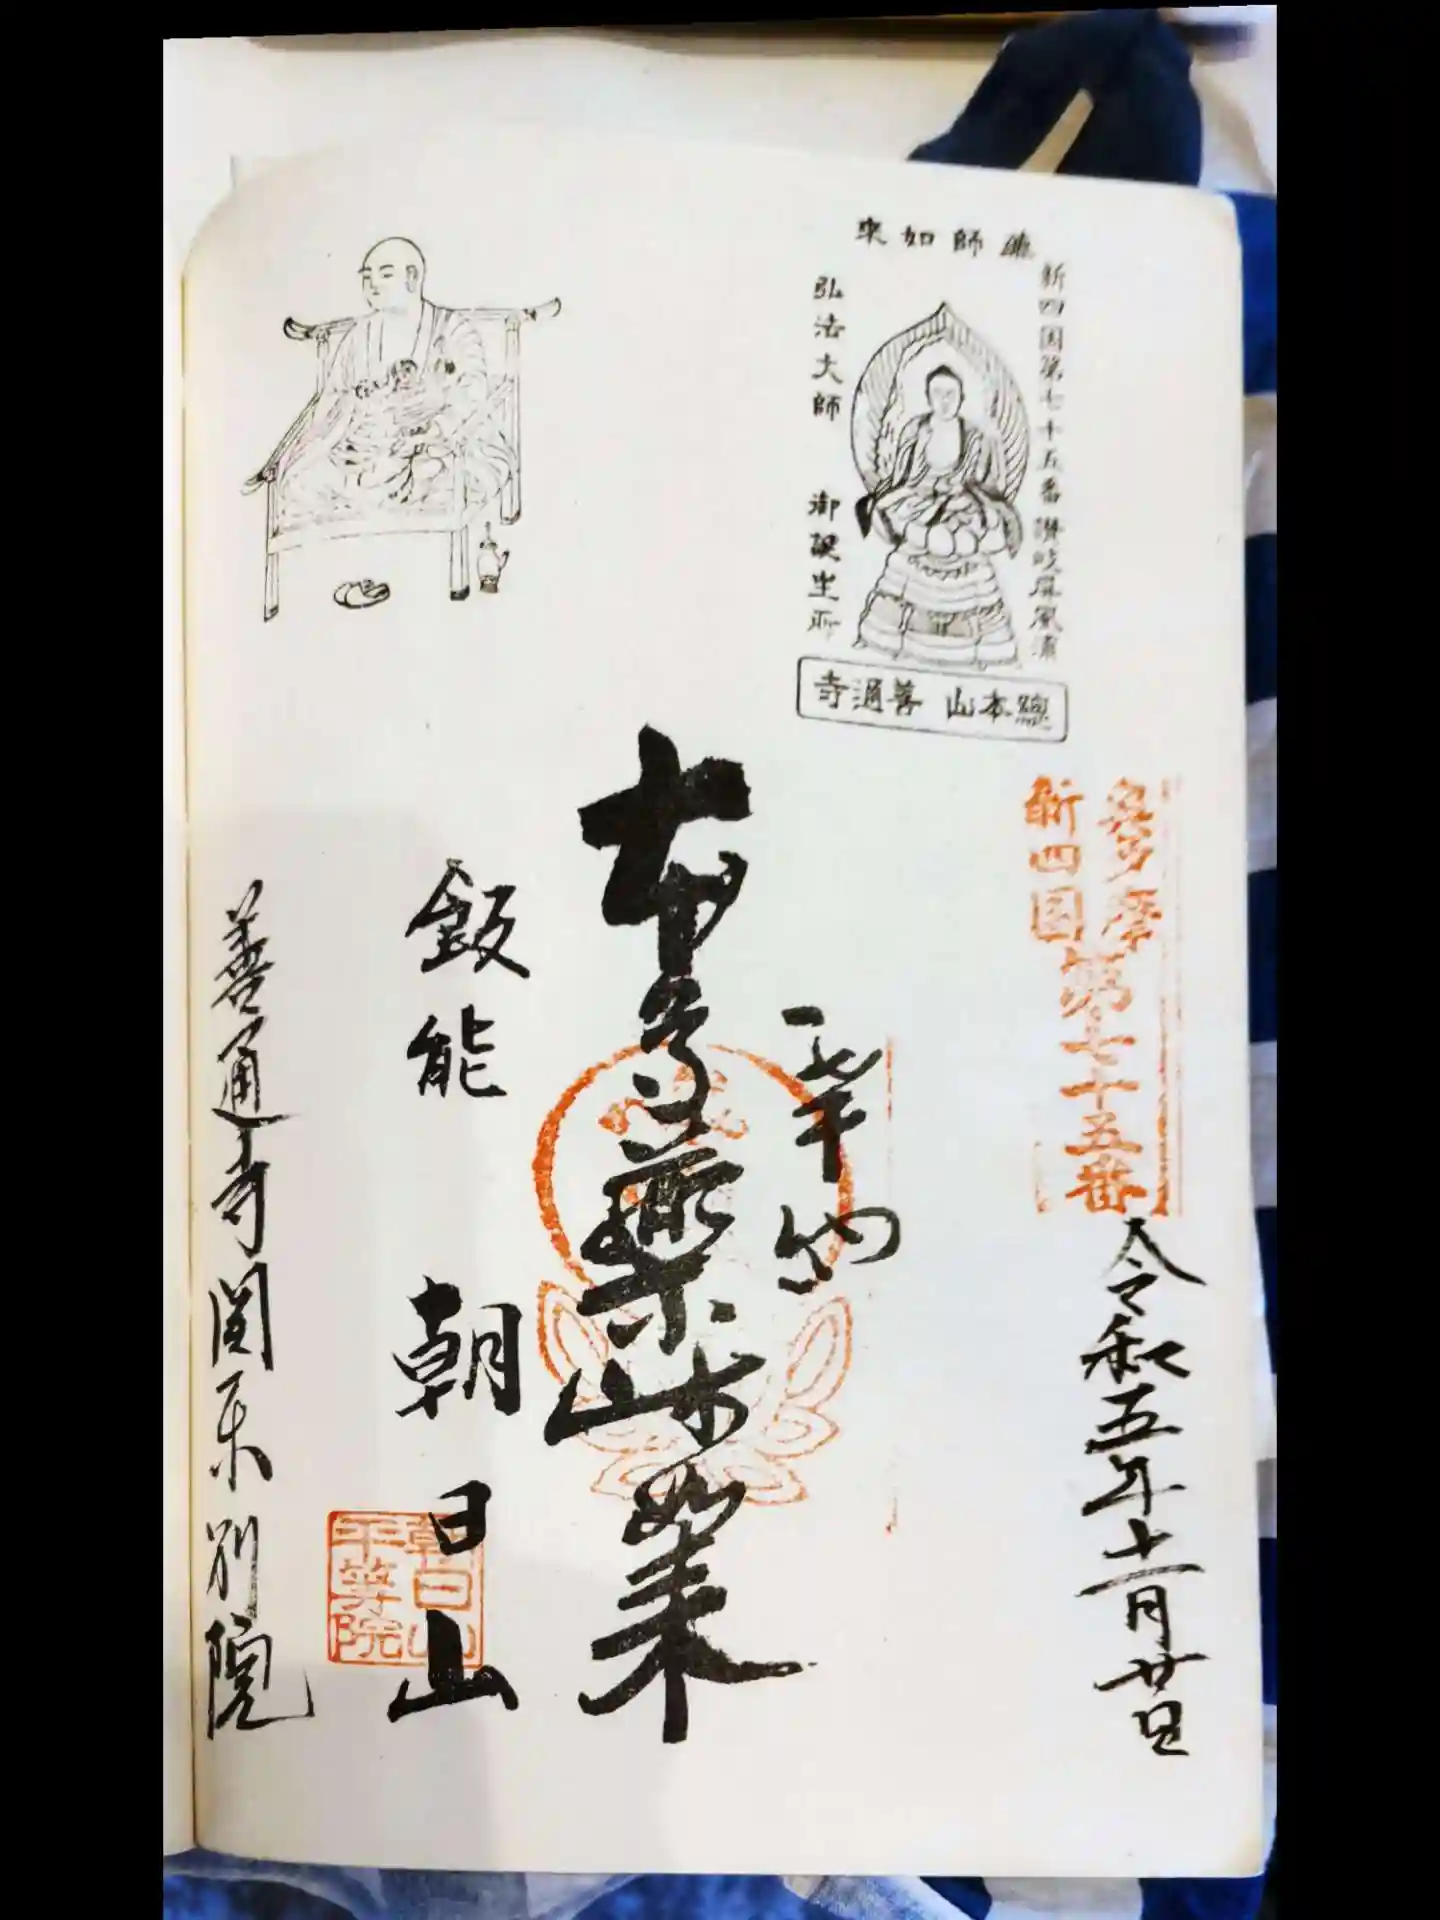 薬師如来
新四国第七十五番讃岐屏風浦
弘法大師 御誕生所
総本山 善通寺
奥多摩
新四国
第七十五番
令和五年十二月廿日
奉納
本尊薬師如来
飯能 朝日山
朝日山
平等院
善通寺関东別院